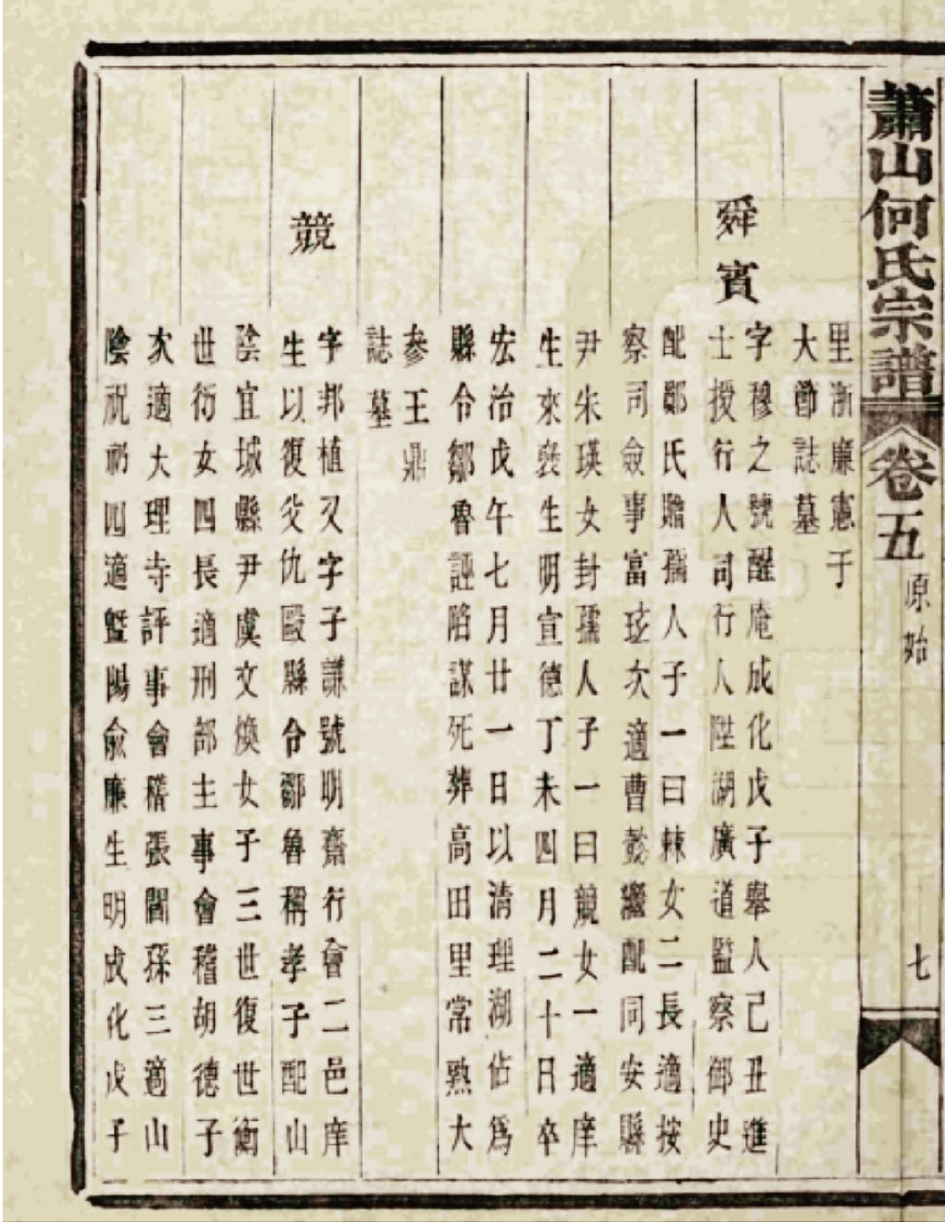 蕭山何氏宗譜
卷五
原始
七
里浙廉憲于
大節誌墓
舜賓
字穆之號醒庵成化戊子舉人己丑進
士授行人司行人陞湖廣道監察御史
配鄭氏贈孺人子一曰棘女二長適按
察司僉事富玹次適曹懿繼配同安縣
尹朱瑛女封孺人子一曰競女一適庠
生來裝生明宣德丁未四月二十日卒
宏治戊午七月廿一日以清理湖佔爲
縣令鄒魯誣陷謀死葬高田里常熟大
參王鼎
誌墓
競
字邦植又字子謙號明齋行會二邑庠
生以復父仇毆縣令鄒魯稱孝子配山
陰宜城縣尹虞文煥女子三世復世衡
世衍女四長適刑部主事會稽胡德子
次適大理寺評事會稽張閏孫三適山
陰祝礽四適曁陽俞廉生明成化戊子